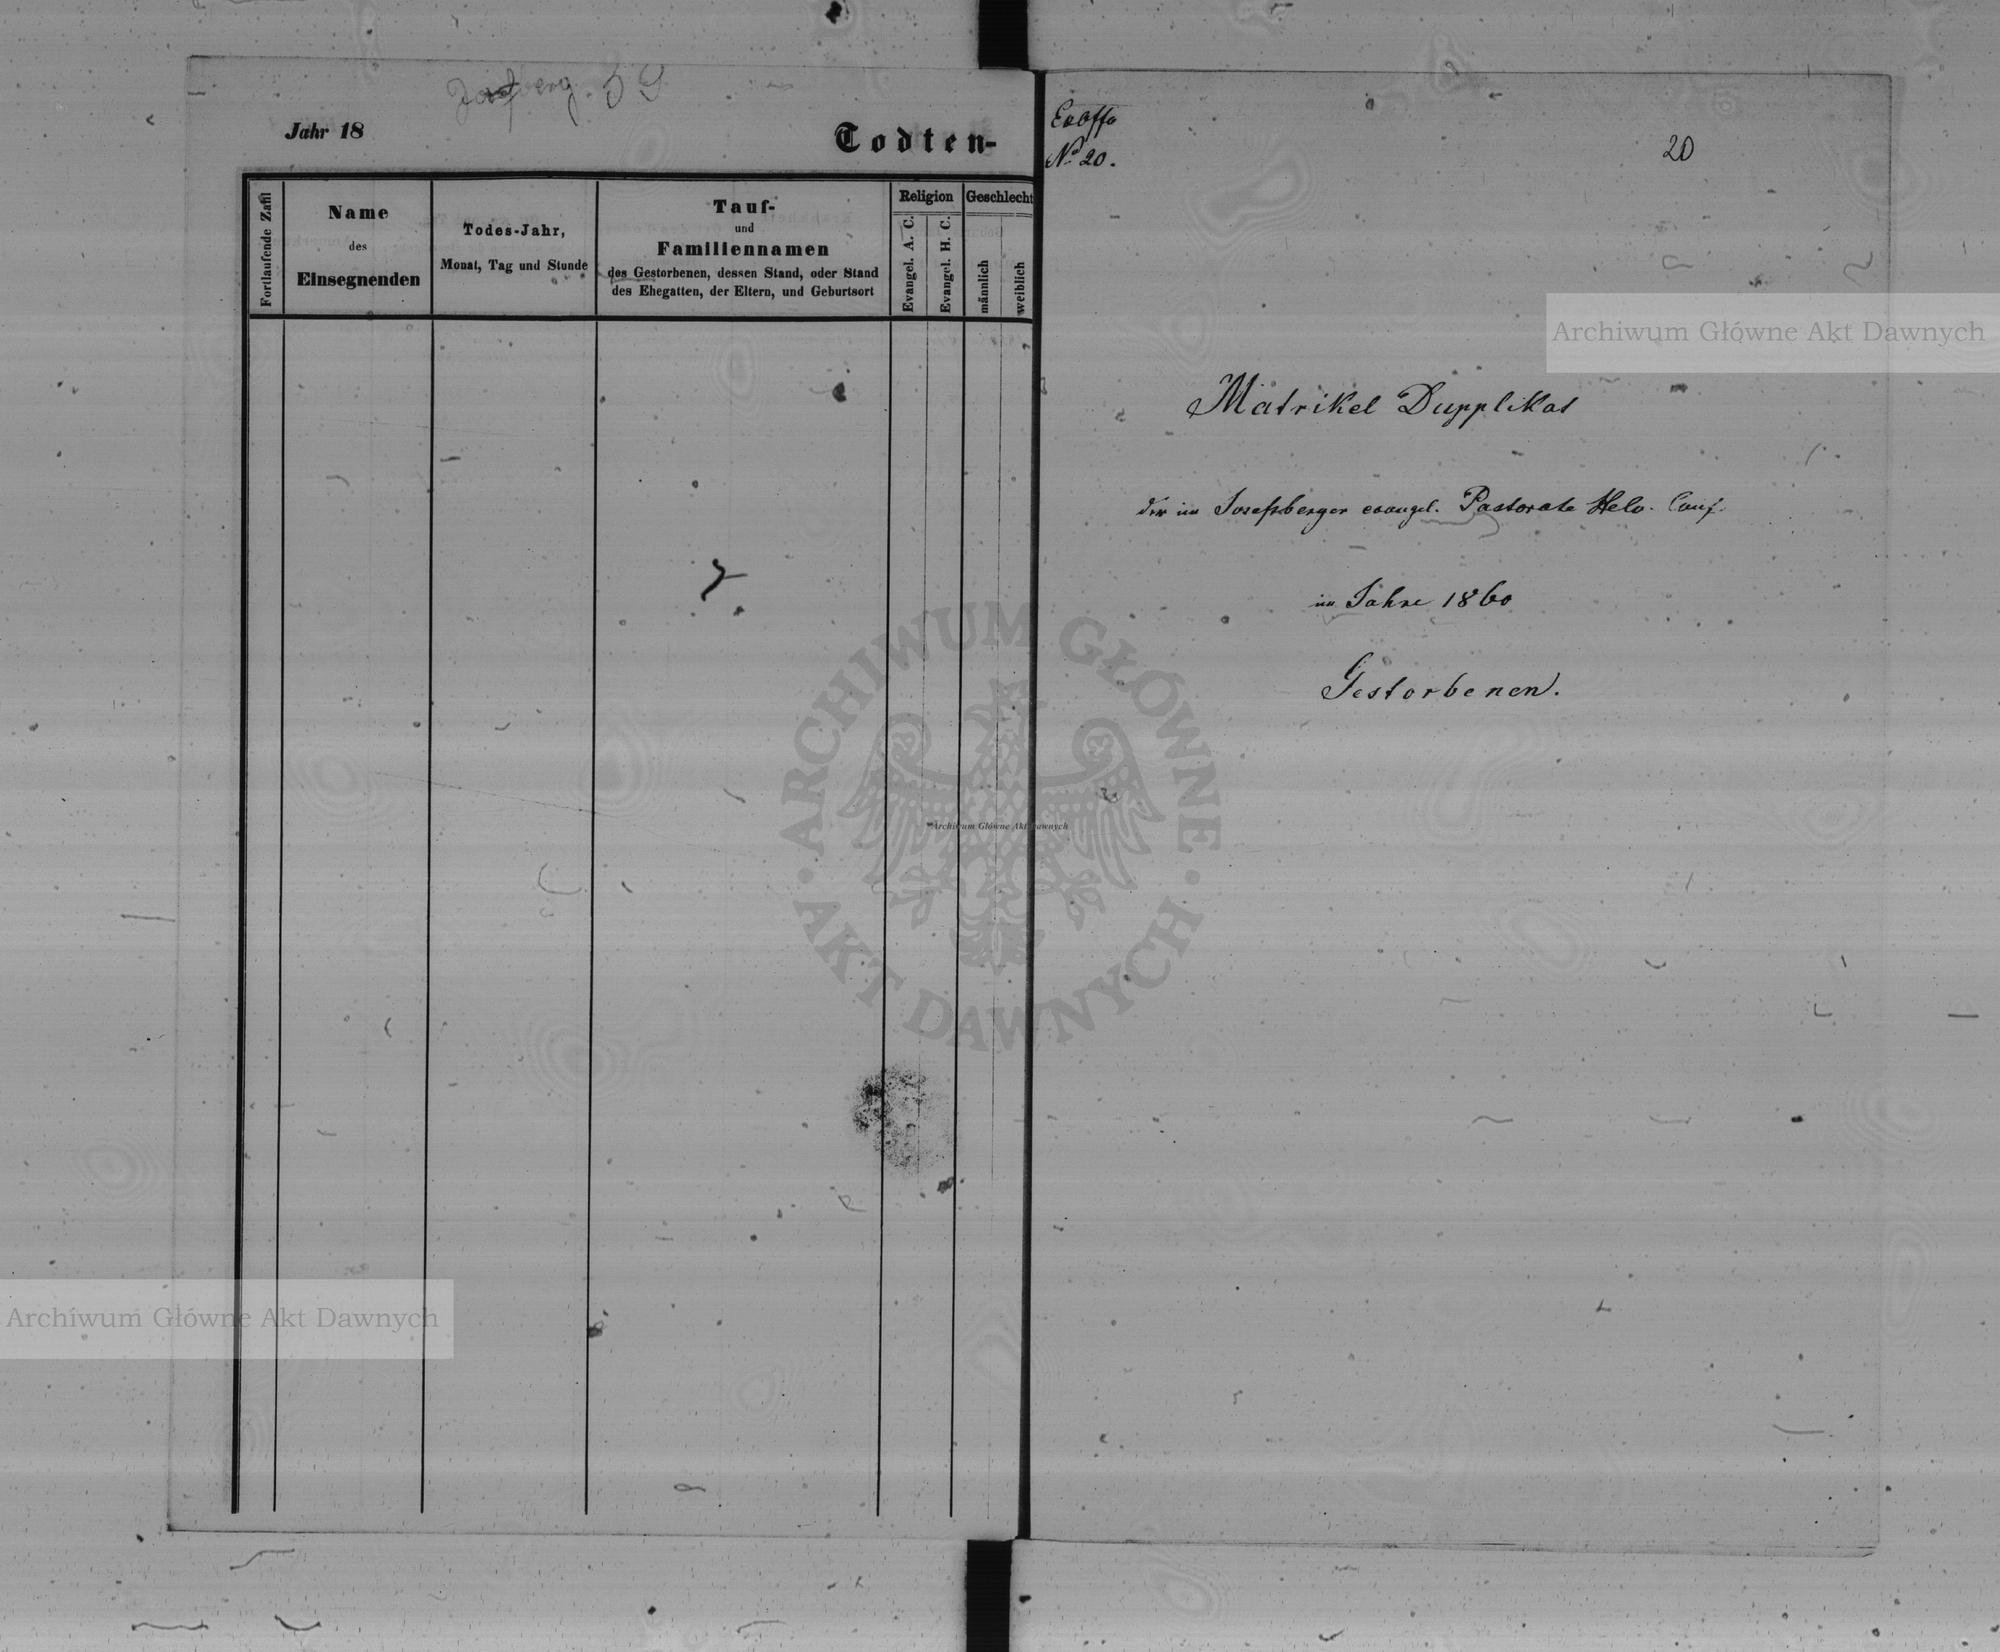 Josefberg. 59
Jahr 18
Todten-
Fortlaufende Zahl
Name
des
Einsegnenden
Todes-Jahr,
Monat, Tag und Stunde
Tauf-
und
Familiennamen
des Gestorbenen, dessen Stand, oder Stand
des Ehegatten, der Eltern, und Geburtsort
Religion
Evangel. A. C.
Evangel. H. C.
Geschlecht
männlich
weiblich
Exoffo
No 20.
20
Matrikel Dupplikat
der im Josefsberger evangel. Pastorate Helv. Conf.
im Jahre 1860
Gestorbenen.
Archiwum Główne Akt Dawnych
ARCHIWUM GŁÓWNE
AKT DAWNYCH
Archiwum Główne Akt Dawnych
Archiwum Główne Akt Dawnych